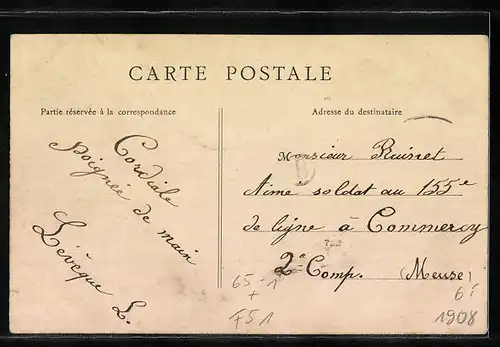 CARTE POSTALE
Partie réservée à la correspondance
Adresse du destinataire
Cordiale
poignée de main
Lévêque L.
Monsieur
Aimé soldat au 155e
de ligne à Commercy
2e Comp. (Meuse)
65-1
+
F51
6f
1908